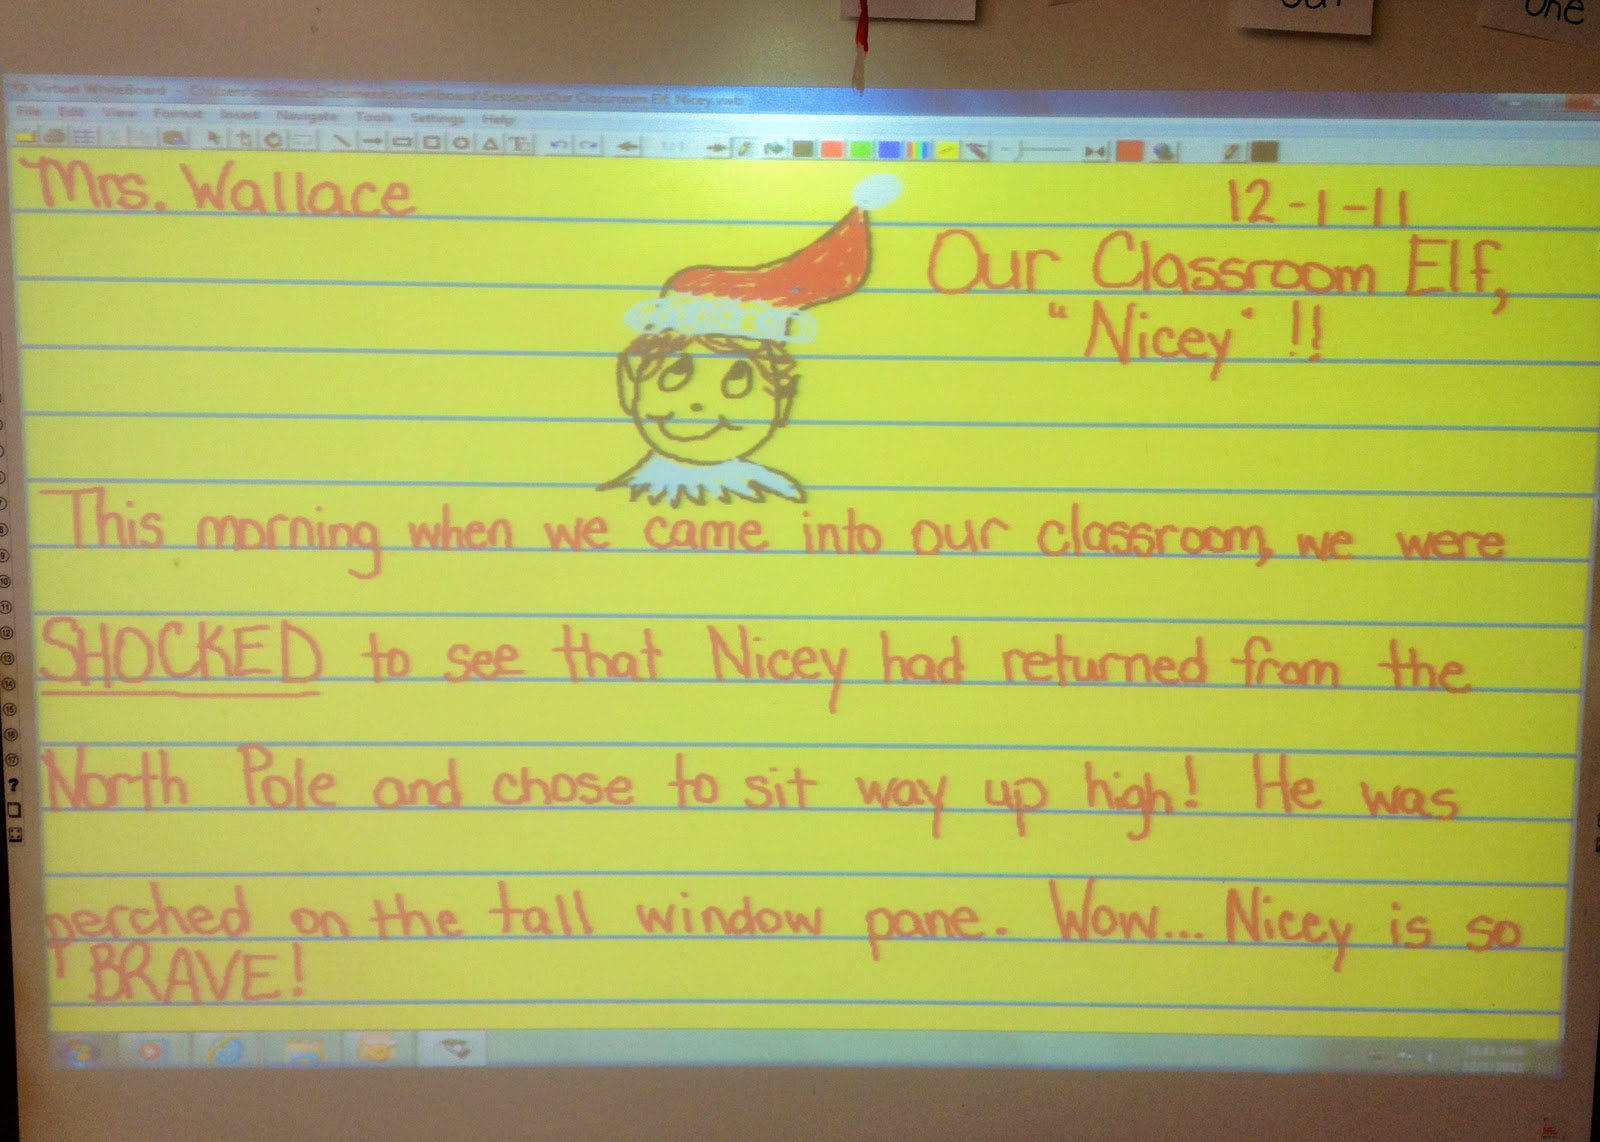 out
one
Virtual WhiteBoard - C:\Users\awallace\Documents\Intelliboard\Sessions\Our Classroom Elf, Nicey.vwb
File Edit View Format Insert Navigate Tools Settings Help
Mrs. Wallace
12-1-11
Our Classroom Elf,
"Nicey" !!
This morning when we came into our classroom, we were
SHOCKED to see that Nicey had returned from the
North Pole and chose to sit way up high! He was
perched on the tall window pane. Wow... Nicey is so
BRAVE!
9
10
11
12
13
14
15
16
17
?